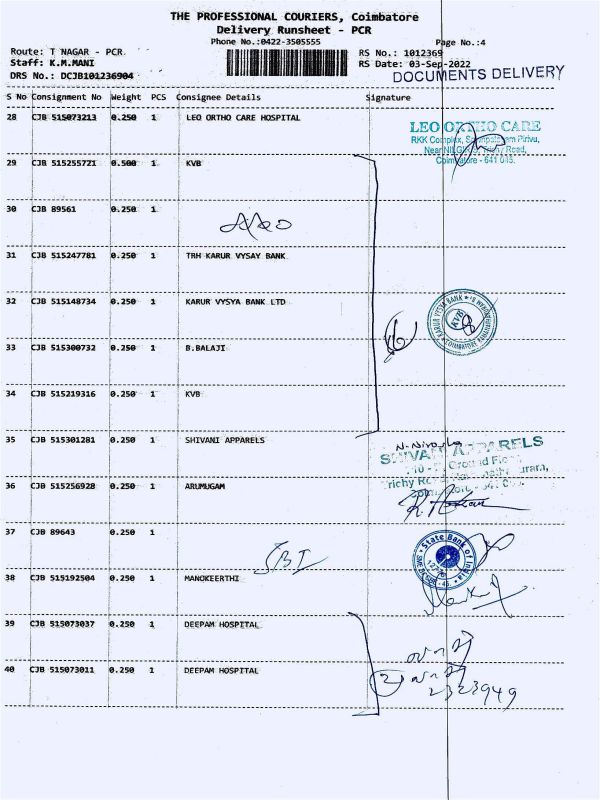 THE PROFESSIONAL COURIERS, Coimbatore
Delivery Runsheet - PCR
Phone No.:0422-3505555
Page No.:4
Route: T NAGAR - PCR
RS No.: 1012369
Staff: K.M.MANI
RS Date: 03-Sep-2022
DRS No.: DCJB101236904
DOCUMENTS DELIVERY
S No Consignment No Weight PCS Consignee Details Signature
28 CJB 515073213 0.250 1 LEO ORTHO CARE HOSPITAL
LEO ORTHO CARE
RKK
Road,
Coimbatore - 641 045.
29 CJB 515255721 0.500 1 KVB
30 CJB 89561 0.250 1
31 CJB 515247781 0.250 1 TRH KARUR VYSAY BANK
32 CJB 515148734 0.250 1 KARUR VYSYA BANK LTD
KARUR VYSYA BANK
6
33 CJB 515300732 0.250 1 B.BALAJI
34 CJB 515219316 0.250 1 KVB
35 CJB 515301281 0.250 1 SHIVANI APPARELS
SHIVANI APPARELS
Ground
36 CJB 515256928 0.250 1 ARUMUGAM
37 CJB 89643 0.250 1
SBI
State Bank of India
38 CJB 515192504 0.250 1 MANOKEERTHI
39 CJB 515073037 0.250 1 DEEPAM HOSPITAL
40 CJB 515073011 0.250 1 DEEPAM HOSPITAL
2
2323949